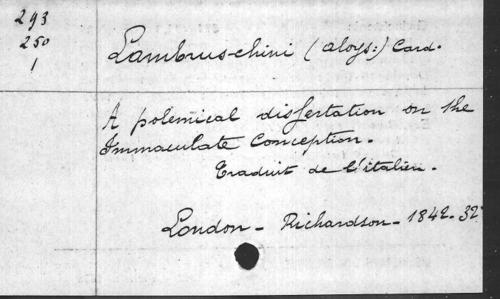 293
250
1
Lambruschini (Aloys:) Card.
A polemical dissertation on the
Immaculate Conception.
Traduit de l'italien.
London - Richardson - 1842. 32°